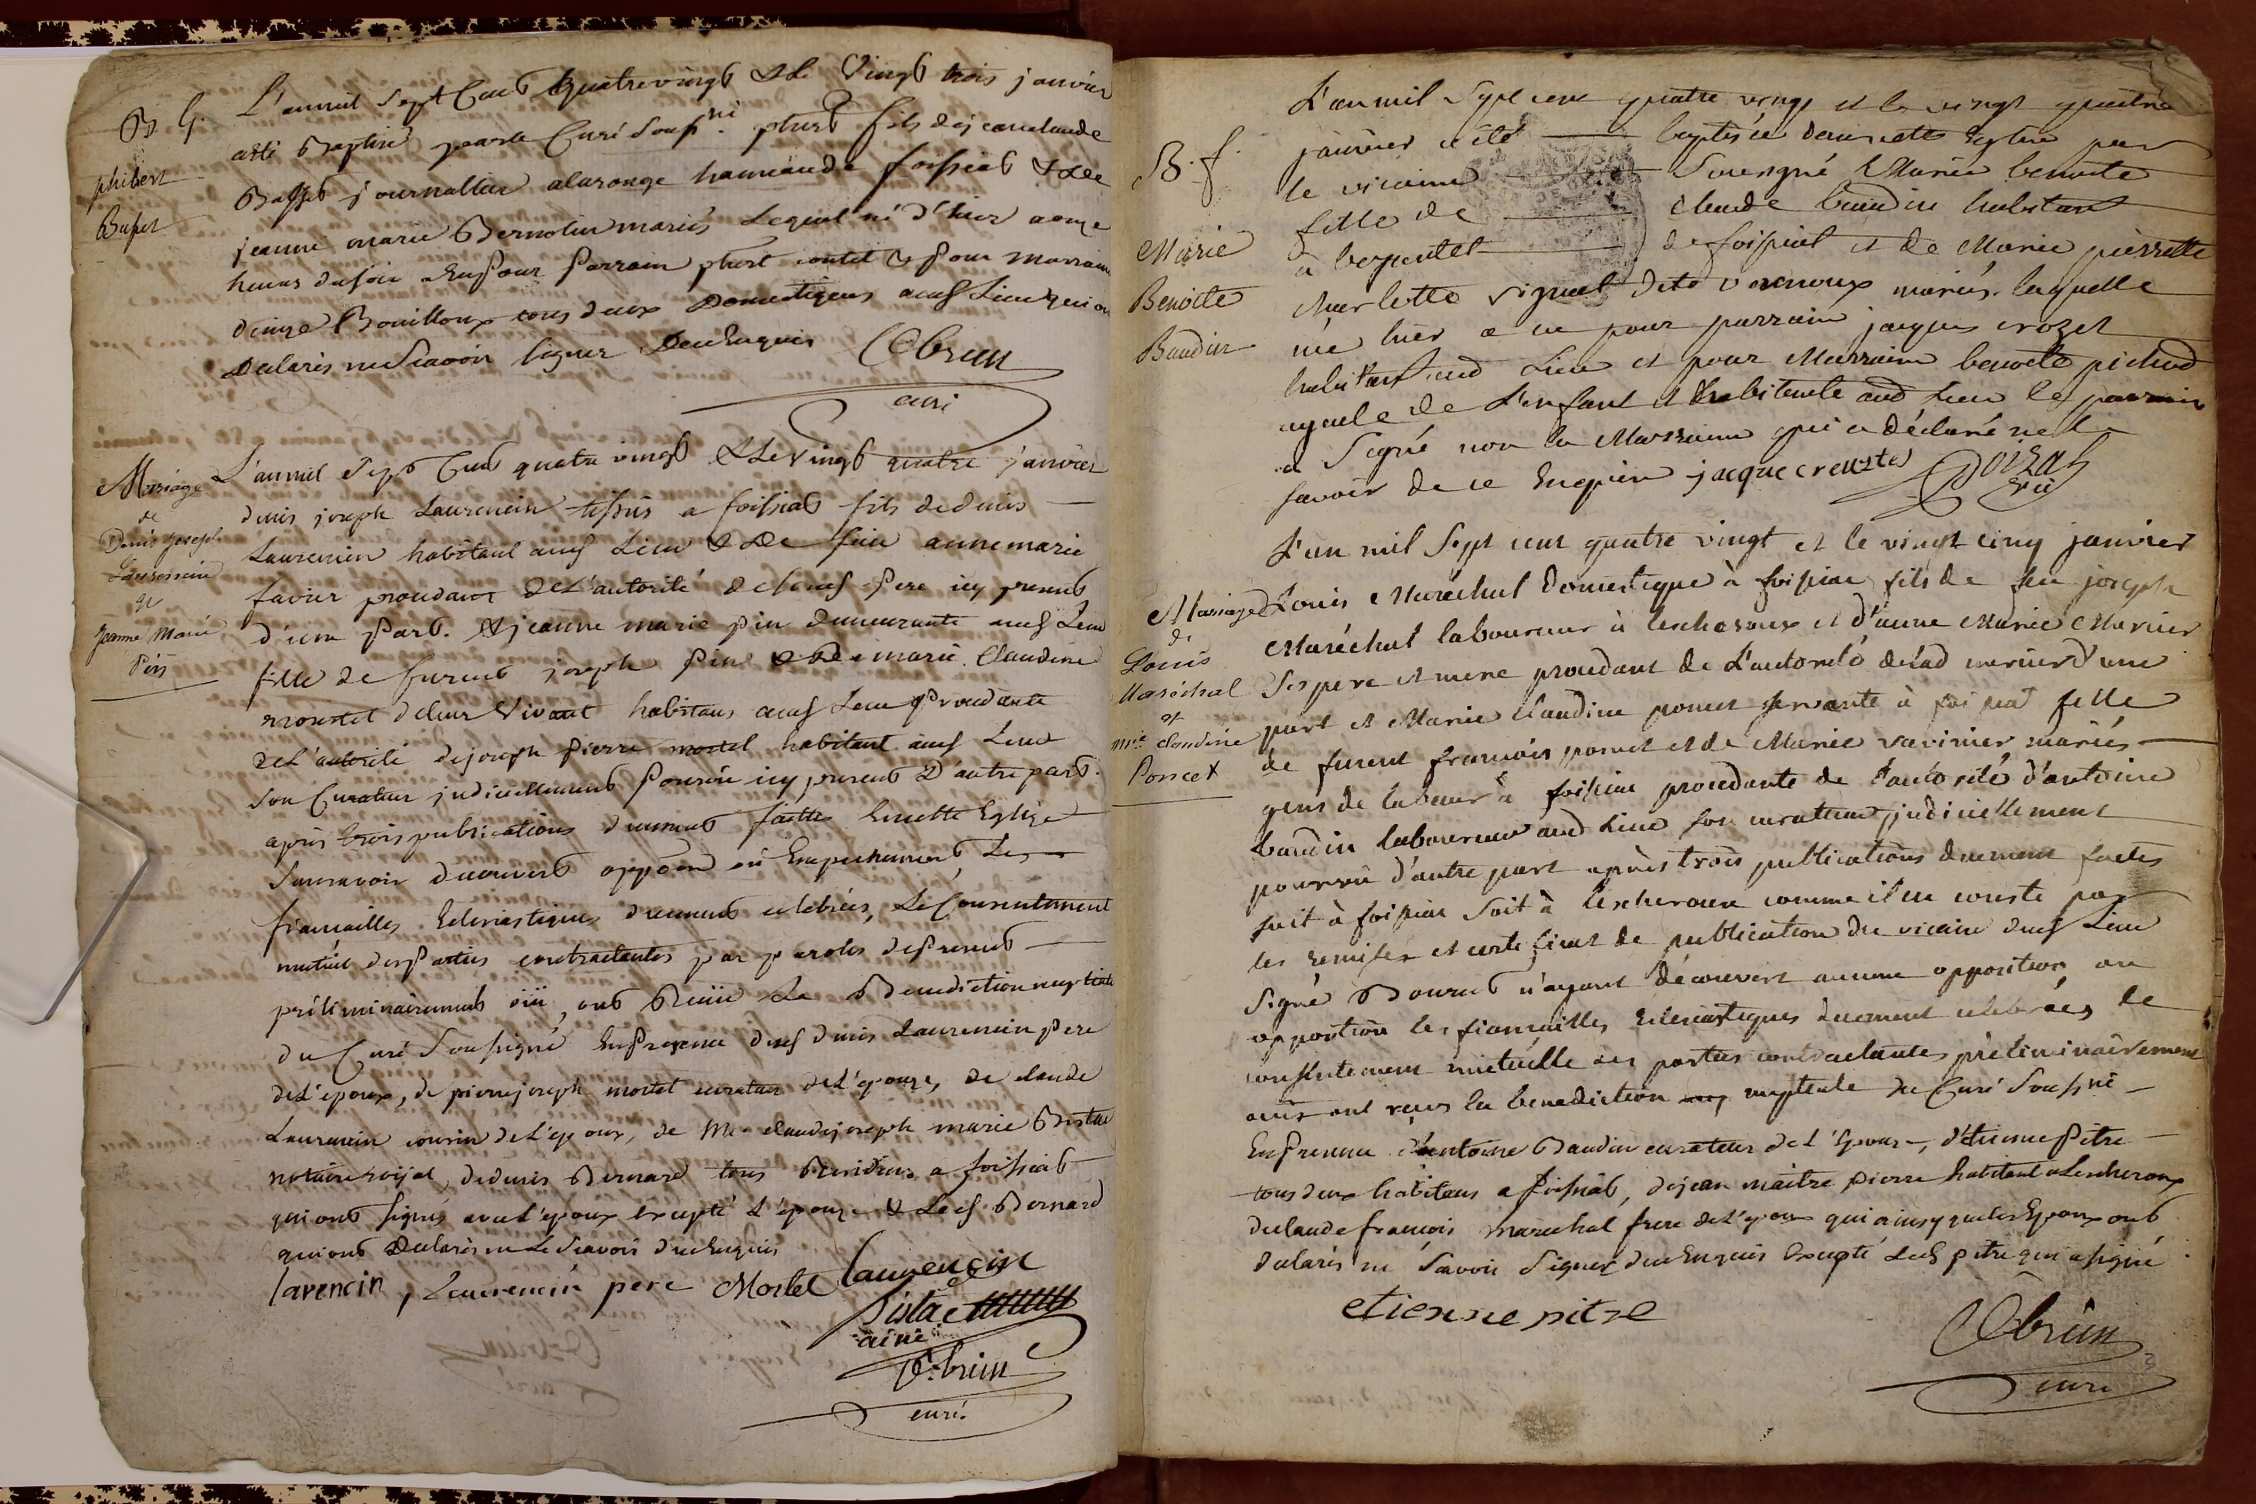 B. G.
philibert
Bufet
L'an mil Sept Cent quatrevingt & le Vingt trois janvier
a été Baptisé par le Curé Souss.né philbt fils de jean claude
Buffet journallier a la ronge hameau de foissiat & de
jeanne marie Bernolin mariés Lequel né d'hier a onze
heures du soir a Eu pour Parrain philbt contet & pour marraine
denize Bouilloux tous deux Domestiques aud Lieu qui ont
Déclarés ne Scavoir Signer De ce Enquis CObrun
curé
Mariage
de
Denis Joseph
Laurencin
et
Jeanne Marie
Pin
L'an mil Sept Cent quatre vingt & le vingt quatre janvier
denis joseph Laurencin tissier a foissiat fils de denis
Laurencin habitant aud Lieu & de feue anne marie
favier procedant de L'autorité de son d. Pere icy present
d'une Part. & jeanne marie pin demeurante aud Lieu
fille de furent joseph Pin & de marie Claudine
mortel de leur Vivant habitans aud Lieu procedante
de L'autorité de joseph pierre mortel habitant aud Lieu
Son Curateur judiciellement Pourvu icy present D'autre part.
après trois publications duement faittes En cette Eglize
Sans avoir decouvert opp.on ou Empechement Les
fiancailles Eclesiastiques duement celebrées, Le Consentement
mutuel des Parties contractantes par paroles de Present
préliminairement oüi, ont Reçüe La Benediction nuptiale
du Curé Soussigné En Presence dud denis Laurencin pere
de L'epoux, de pierre joseph mortel curateur de L'epouze, de claude
Laurencin cousin de L'epoux, de Me claude joseph marie Bistac
notaire roÿal, de denis Bernard tous Residens a foissiat
qui ont Signés avec L'epoux Excepté L'epouze & Led. Bernard
qui ont Déclarés ne Le Scavoir de ce Enquis
larencin, Laurencin pere Mortel Laurencin
Bistac
ainé
CObrun
curé.
B. f.
Marie
Benoite
Baudin
L'an mil Sept cent quatre vingt et le vingt quatre
janvier a été baptisée dans cette Eglise par
le vicaire Sousigné Marie benoite
fille de claude baudin habitant
a bepentet de foissiat et de Marie pierrette
charlotte vignal dite vernoux mariés. laquelle
née hier a eu pour parrain jacques crozet
habitant aud Lieu et pour Marraine benoite pichod
ayeule de L'enfant et habitante aud Lieu le parrain
a Signé non la Marraine qui a déclaré ne le
savoir de ce Enquise jacque creuzet Doizat
vic
Mariage
de
Louis
Maréchal
et
m.ie claudine
Poncet
L'an mil Sept cent quatre vingt et le vingt cinq janvier
Louis Maréchal domestique à foissiat fils de feu joseph
Maréchal laboureur à lescheroux et d'anne Marie Marier
Ses pere et mere procedant de L'autorité de lad marier d'une
part et Marie Claudine poncet servante à foissiat fille
de furent francois poncet et de Marie varinier mariés
gens de labeur à foissiat procedante de L'autorité d'antoine
baudin laboureur aud Lieu son curateur judiciellement
pourvu d'autre part après trois publications duement faites
soit à foissiat soit à lescheroux comme il en conste par
les remises et certificat de publication du vicaire dud Lieu
Signé Bouret n'ayant découvert aucune opposition ou
opposition les fiancailles Eclesiastiques duement célébrées le
consentement mutuelle des parties contractantes préliminairement
ouis ont reçus la benediction nuptiale du Curé Souss.né
En Presence d'antoine Baudin curateur de L'Epouse, d'étienne Pitre
tous deux habitans a foissiat, de jean maitre pierre habitant a Lescheroux
de claude francois marechal frere de L'epoux qui ainsy que les Epoux ont
déclarés ne Savoir Signer de ce Enquis Excepté Led pitre qui a signé
etienne pitre
CObrun
curé